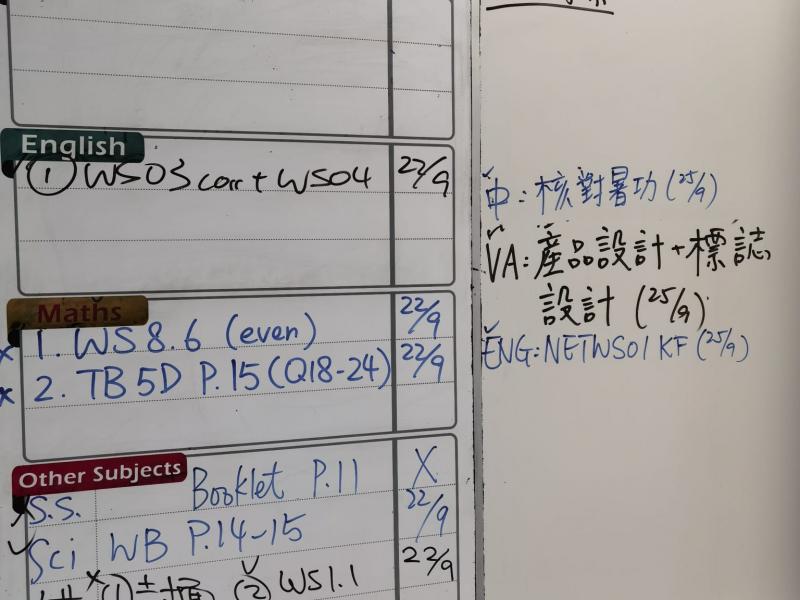 English
① WS03 corr + WS04 22/9
Maths
1. WS 8.6 (even) 22/9
2. TB 5D P.15 (Q18-24) 22/9
Other Subjects
S.S. Booklet P.11 X
Sci WB P.14-15 22/9
(2) WS1.1 22/9
中: 核對暑功 (25/9)
VA: 產品設計 + 標誌
設計 (25/9)
ENG: NETWS01 KF (25/9)